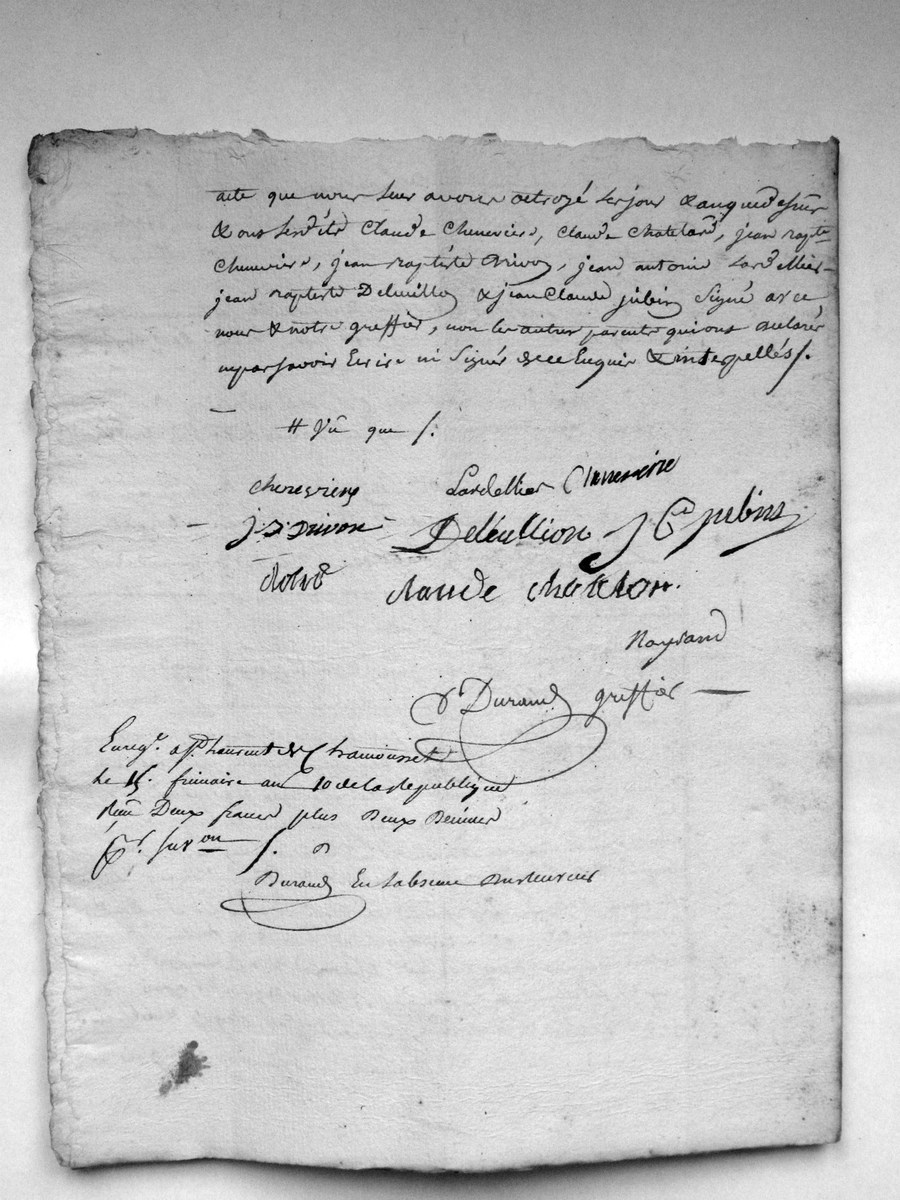 acte que nous leur avons octroyé les jour & an que dessus
& ont lesdits Claude Chenevier, Claude Chatelard, jean bapte
Chenevier, jean baptiste Drivon, jean antoine Lardellier
jean baptiste Deleuillon & jean Claude jubin Signé avec
nous & notre greffier, non les autres parents qui ont déclarés
ne pas savoir Ecrire ni Signer de ce Enquis & interpellés /.
# Vû que /.
Lardellier
J. B. Drivon Deleullion J Cde jubin
claude chatelon.
Durand greffier
Enregt. a St. Laurent de Chamousset
le 15. frimaire an 10 de la Republique
Deux francs plus Deux Décimes
Durand